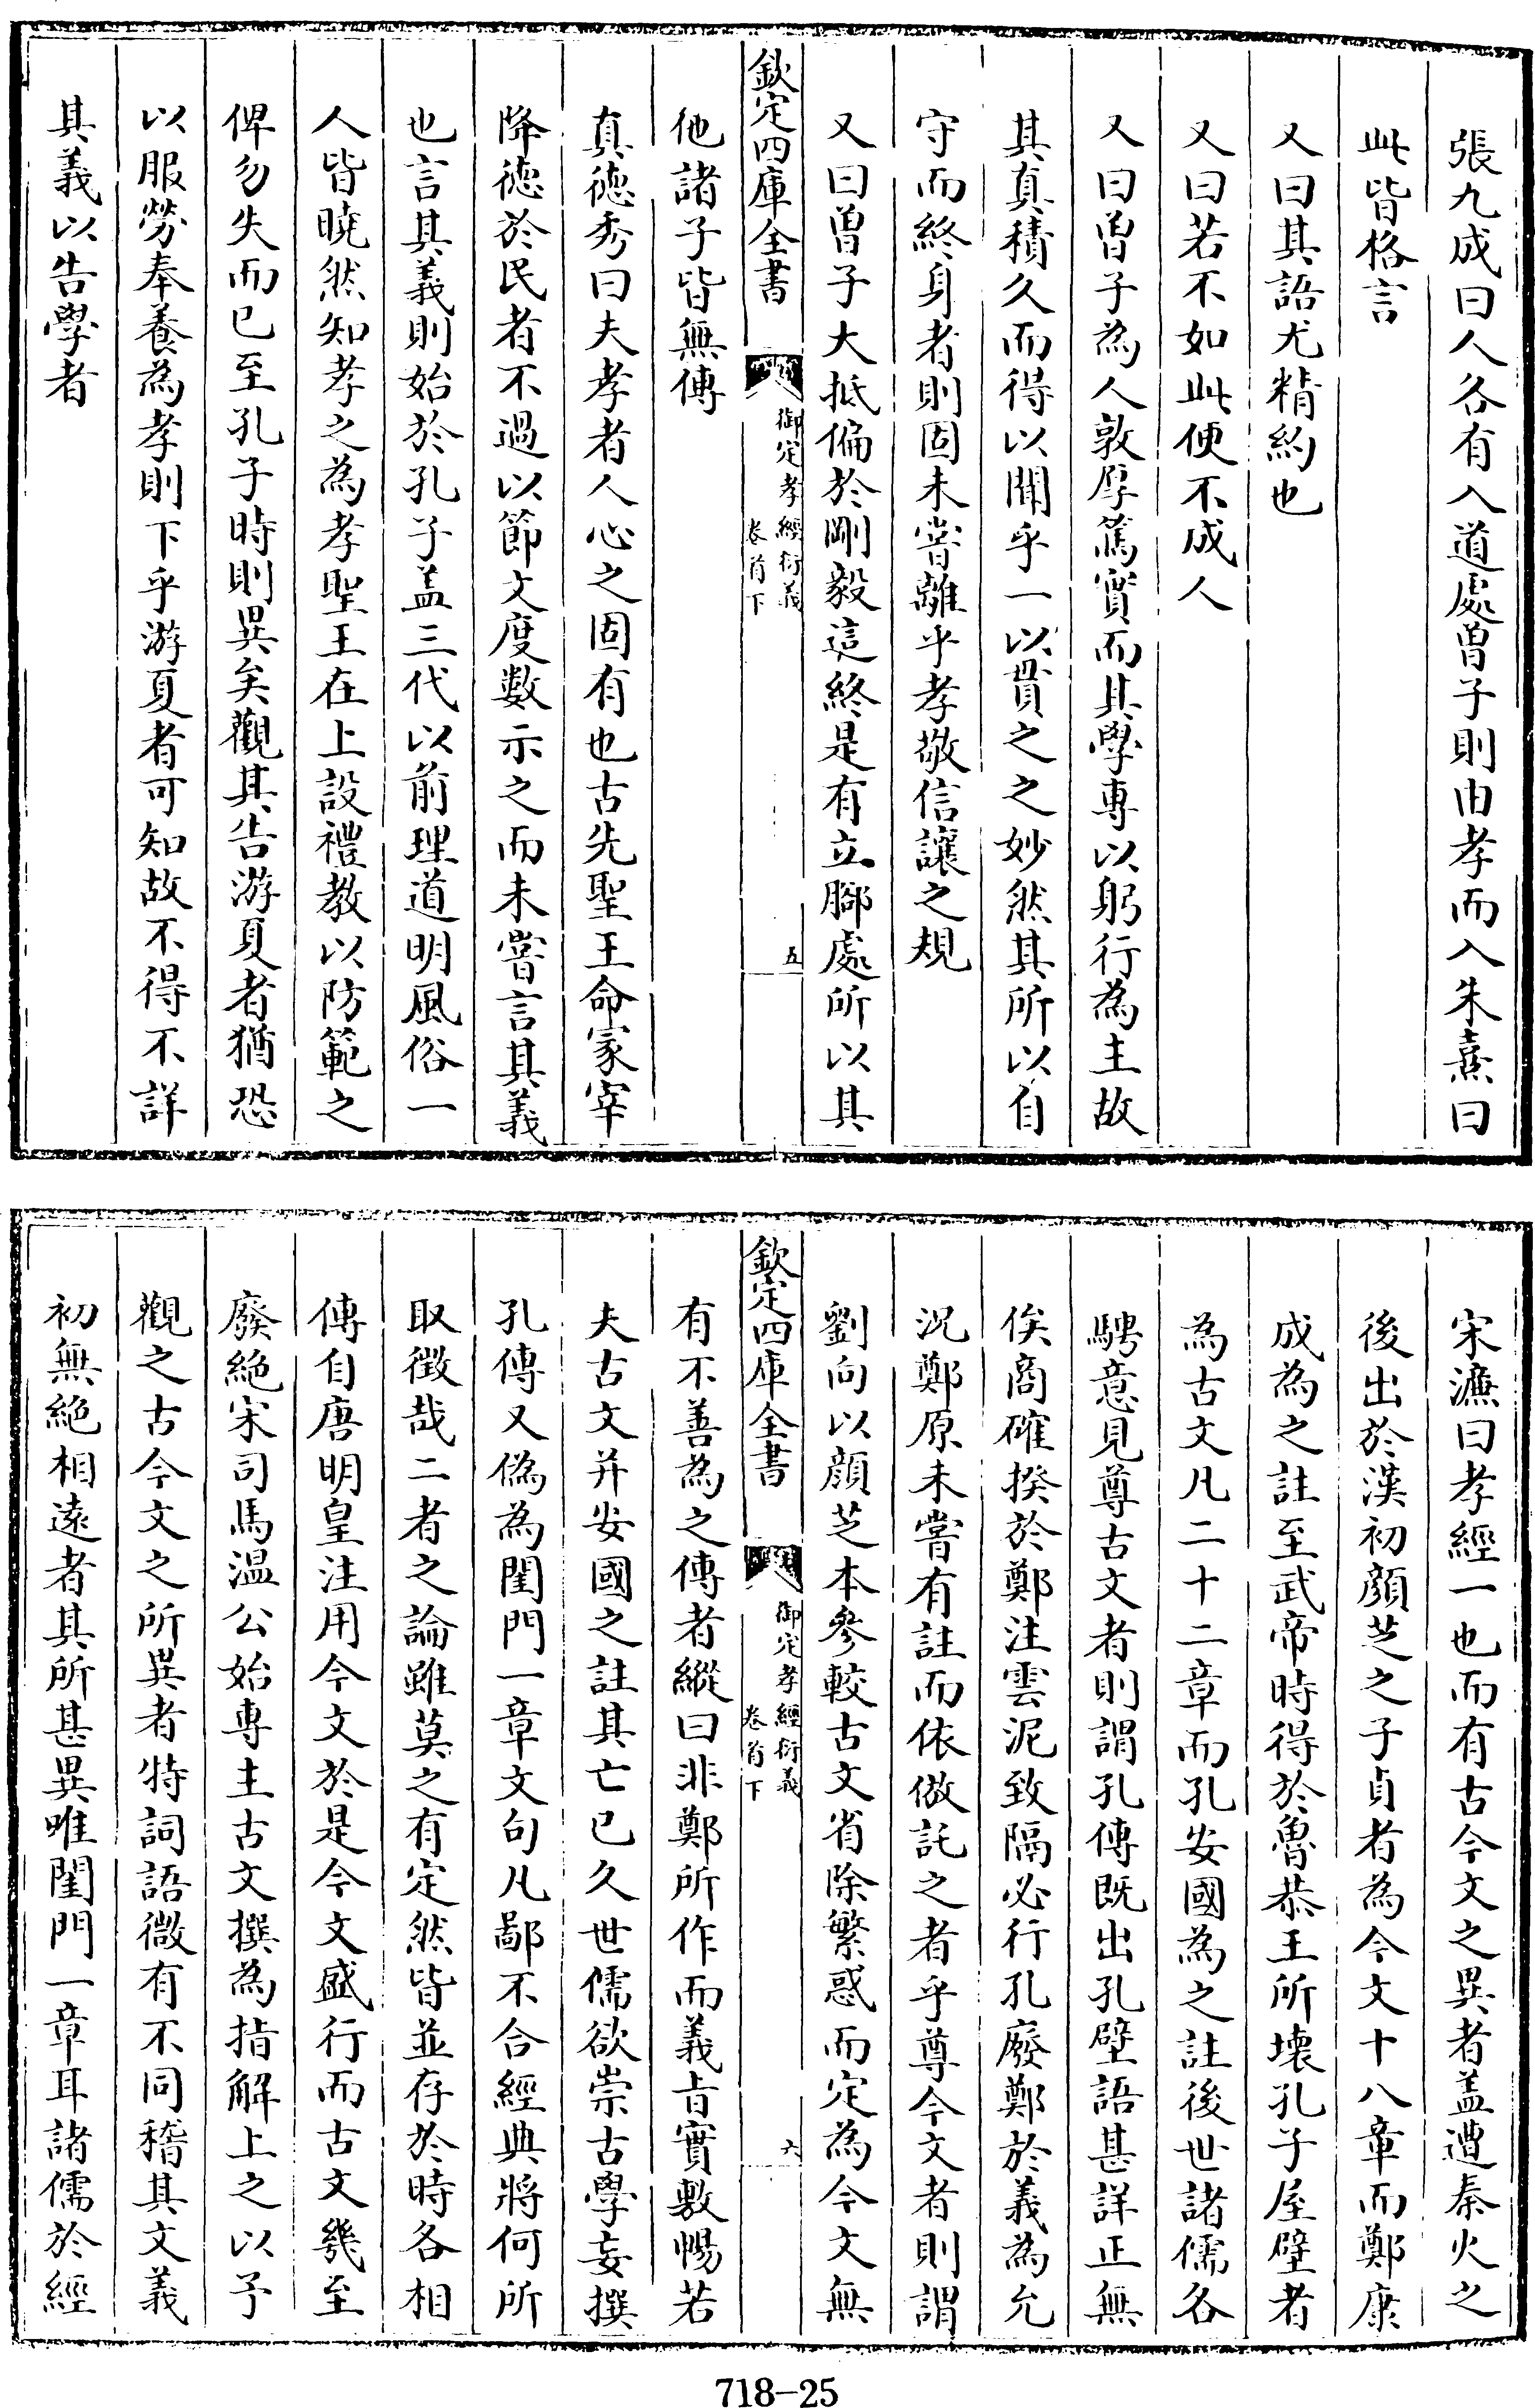 張九成曰人各有入道處曽子則由孝而入朱熹曰
此皆格言
又曰其語尤精約也
又曰若不如此便不成人
又曰曽子為人敦厚篤實而其學專以躬行為主故
其真積久而得以聞乎一以貫之之妙然其所以自
守而終身者則固未嘗離乎孝敬信讓之規
又曰曽子大抵偏於剛毅這終是有立腳處所以其
欽定四庫全書
御定孝經衍義
卷首下
五
他諸子皆無傳
真德秀曰夫孝者人心之固有也古先聖王命冢宰
降德於民者不過以節文度數示之而未嘗言其義
也言其義則始於孔子盖三代以前理道明風俗一
人皆曉然知孝之為孝聖王在上設禮教以防範之
俾勿失而已至孔子時則異矣觀其告游夏者猶恐
以服勞奉養為孝則下乎游夏者可知故不得不詳
其義以告學者
宋濂曰孝經一也而有古今文之異者盖遭秦火之
後出於漢初顔芝之子貞者為今文十八章而鄭康
成為之註至武帝時得於魯恭王所壞孔子屋壁者
為古文凡二十二章而孔安國為之註後世諸儒各
騁意見尊古文者則謂孔傳既出孔壁語甚詳正無
俟商確揆於鄭注雲泥致隔必行孔廢鄭於義為允
況鄭原未嘗有註而依倣託之者乎尊今文者則謂
劉向以顔芝本參較古文省除繁惑而定為今文無
欽定四庫全書
御定孝經衍義
卷首下
六
有不善為之傳者縱曰非鄭所作而義㫖實敷暢若
夫古文并安國之註其亡已久世儒欲崇古學妄撰
孔傳又偽為閨門一章文句凡鄙不合經典將何所
取徵哉二者之論雖莫之有定然皆並存於時各相
傳自唐明皇注用今文於是今文盛行而古文幾至
廢絶宋司馬温公始專主古文撰為指解上之以予
觀之古今文之所異者特詞語微有不同稽其文義
初無絶相遠者其所甚異唯閨門一章耳諸儒於經
718-25